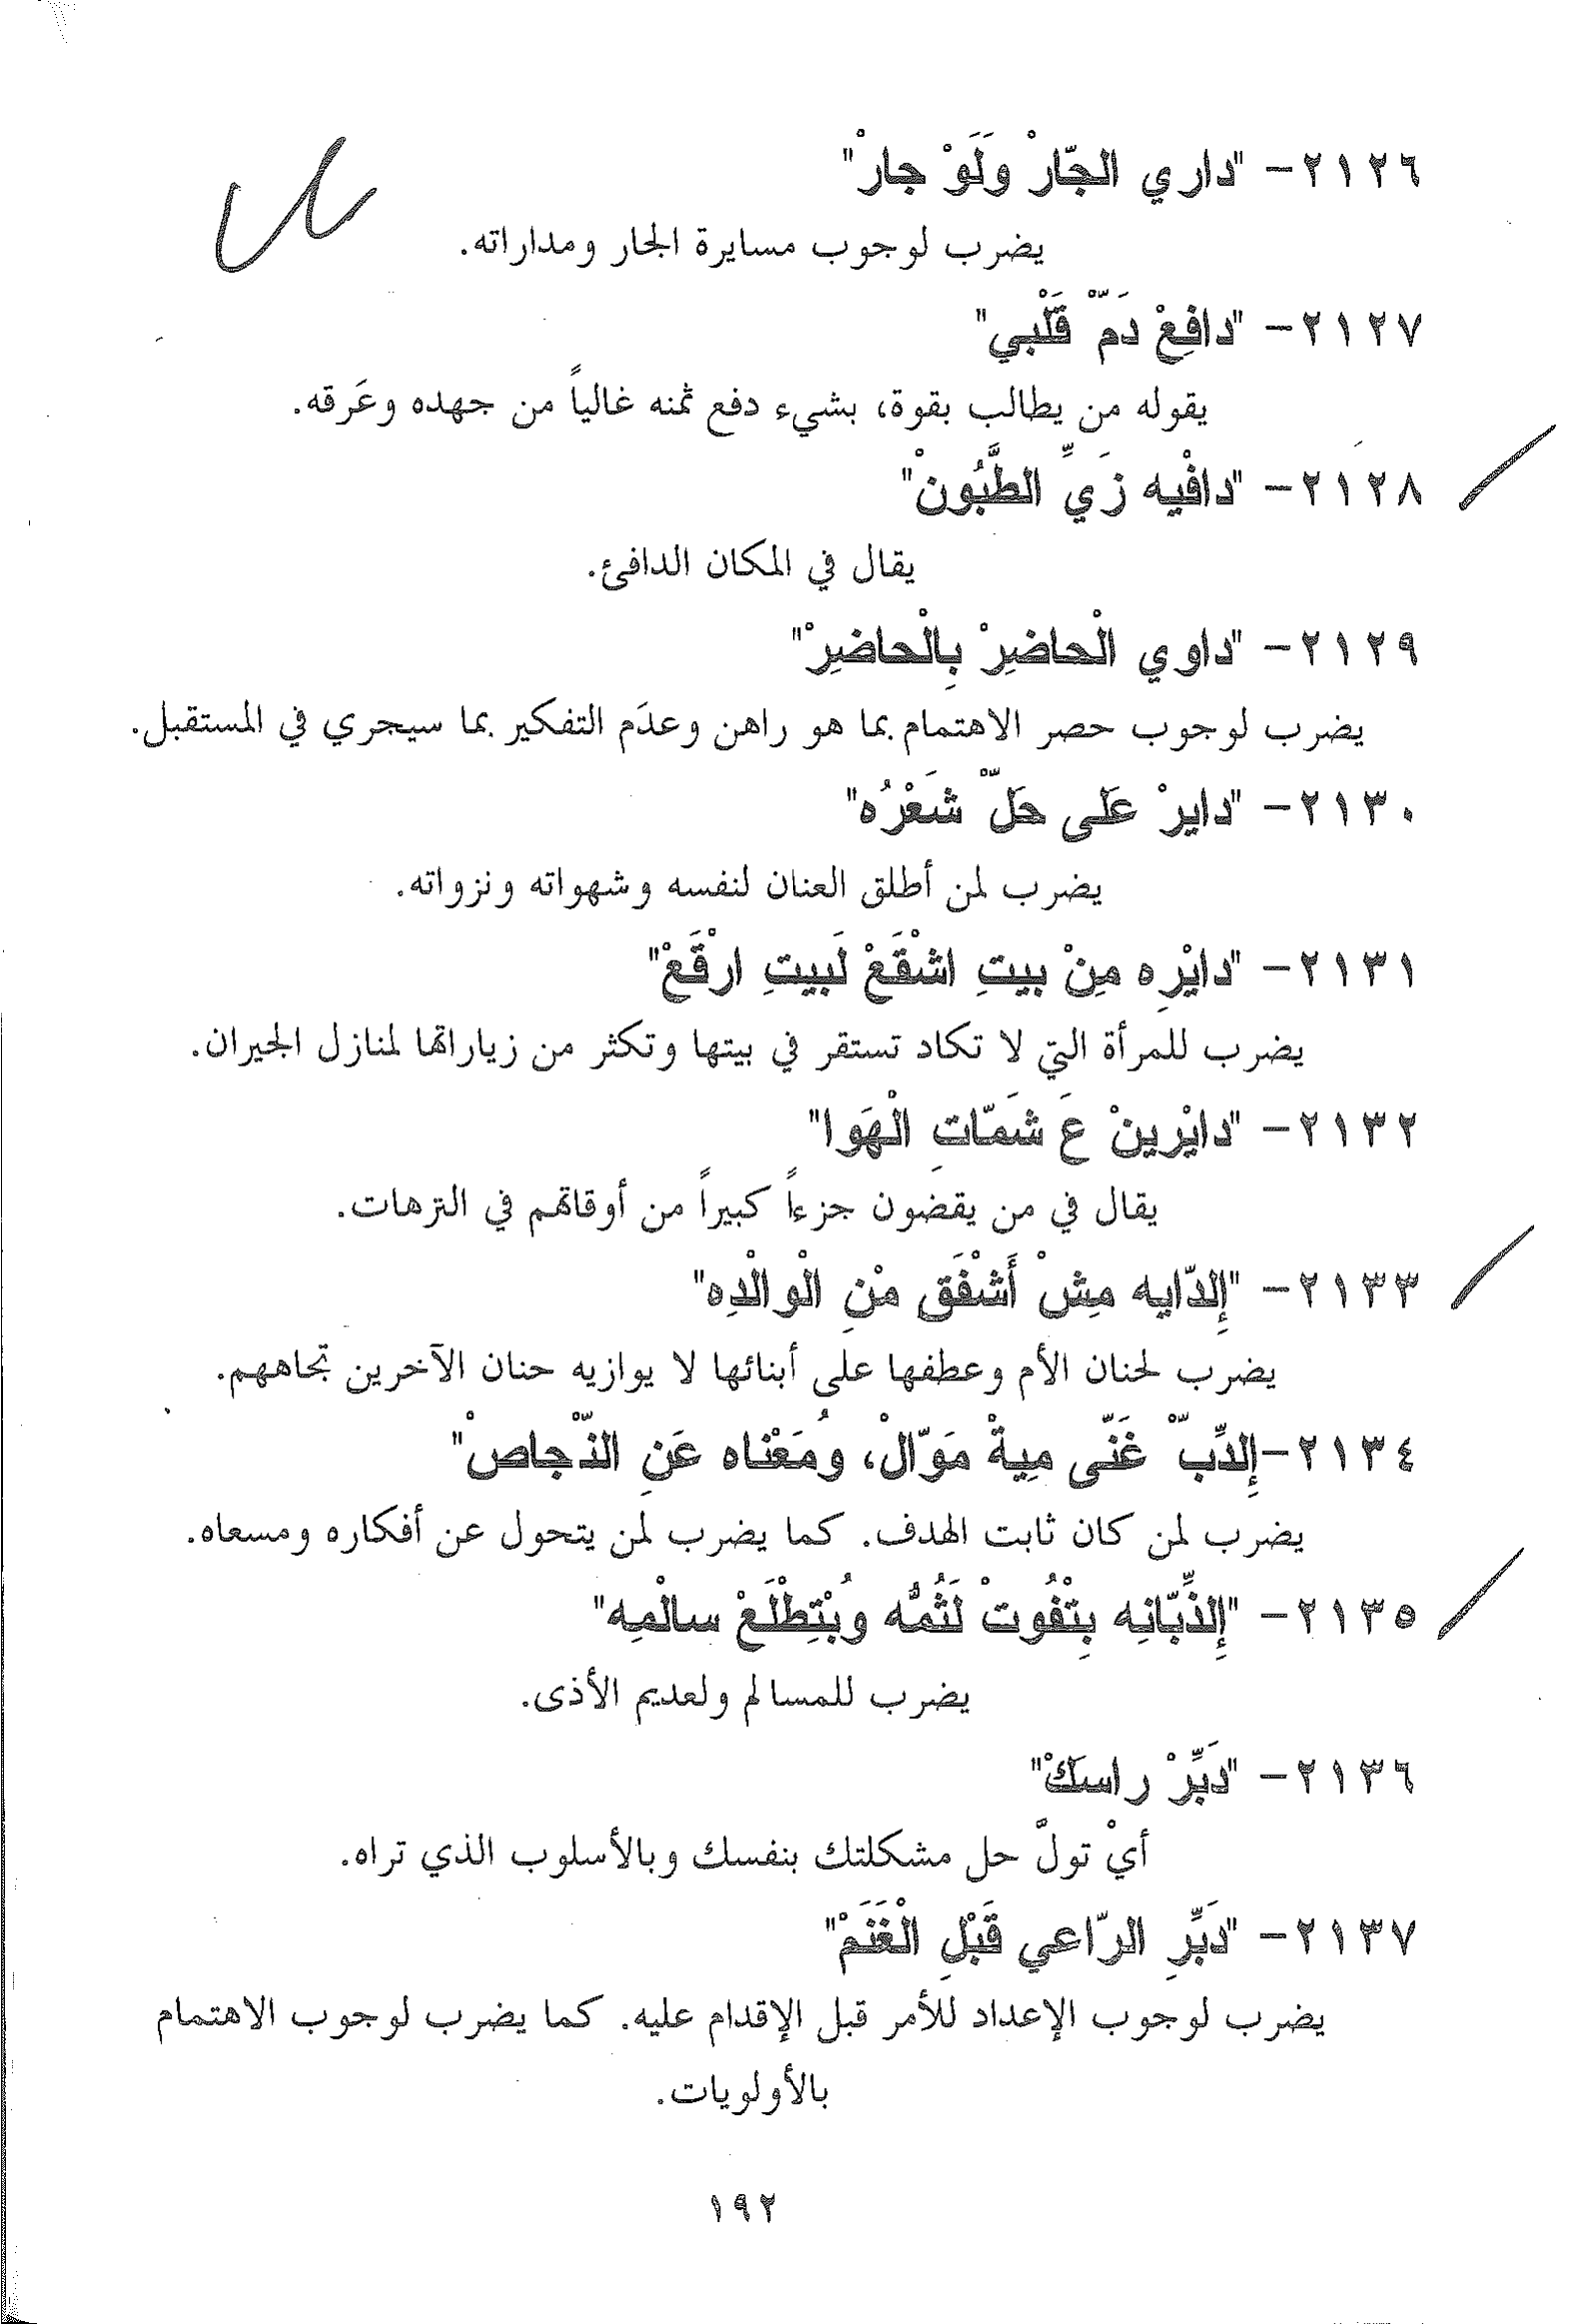 ٢١٢٦- "داري الجّارْ وَلَوْ جارْ"
يضرب لوجوب مسايرة الجار ومداراته.
٢١٢٧- "دافِعْ دَمّْ قَلْبي"
يقوله من يطالب بقوة، بشيء دفع ثمنه غالياً من جهده وعَرقه.
٢١٢٨- "دافْيه زَيِّ الطَّبُّونْ"
يقال في المكان الدافئ.
٢١٢٩- "داوي الْحاضِرْ بِالْحاضِرْ"
يضرب لوجوب حصر الاهتمام بما هو راهن وعدَم التفكير بما سيجري في المستقبل.
٢١٣٠- "دايرْ عَلى حَلّْ شَعْرُه"
يضرب لمن أطلق العنان لنفسه وشهواته ونزواته.
٢١٣١- "دايْرِه مِنْ بيتِ اشْقَعْ لَبيتِ ارْقَعْ"
يضرب للمرأة التي لا تكاد تستقر في بيتها وتكثر من زياراتها لمنازل الجيران.
٢١٣٢- "دايْرينْ عَ شَمّاتِ الْهَوا"
يقال في من يقضون جزءاً كبيراً من أوقاتهم في النزهات.
٢١٣٣- "إِلدّايه مِشْ أَشْفَق مْنِ الْوالْدِه"
يضرب لحنان الأم وعطفها على أبنائها لا يوازيه حنان الآخرين تجاههم.
٢١٣٤-إِلدِّبّْ غَنّى مِيةْ مَوّالْ، وُمَعْناه عَنِ النّْجاصْ"
يضرب لمن كان ثابت الهدف. كما يضرب لمن يتحول عن أفكاره ومسعاه.
٢١٣٥- "إِلذِّبّانِه بِتْفُوتْ لَثُمُّه وُبْتِطْلَعْ سالْمِه"
يضرب للمسالم ولعديم الأذى.
٢١٣٦- "دَبِّرْ راسكْ"
أيْ تولَّ حل مشكلتك بنفسك وبالأسلوب الذي تراه.
٢١٣٧- "دَبِّرِ الرّاعي قَبْلِ الْغَنَمْ"
يضرب لوجوب الإعداد للأمر قبل الإقدام عليه. كما يضرب لوجوب الاهتمام
بالأولويات.
١٩٢